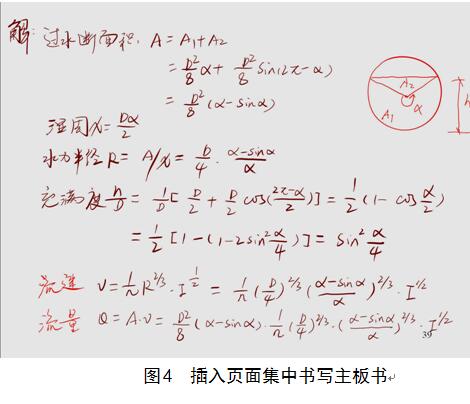 解: 过水断面积, A = A₁+A₂
= D²/8 α + D²/8 sin(2π-α)
= D²/8 (α-sinα)
A₂
A₁ α h
湿周χ = Dα/2
水力半径R = A/χ = D/4 · (α-sinα)/α
充满度 h/D = 1/D [D/2 + D/2 cos((2π-α)/2)] = 1/2 (1- cos α/2)
= 1/2 [1-(1-2sin² α/4)] = sin² α/4
流速 v = 1/n R^(2/3) · I^(1/2) = 1/n (D/4)^(2/3) ((α-sinα)/α)^(2/3) · I^(1/2)
流量 Q = A·v = D²/8 (α-sinα) · 1/n (D/4)^(2/3) · ((α-sinα)/α)^(2/3) · I^(1/2)
39
图4 插入页面集中书写主板书